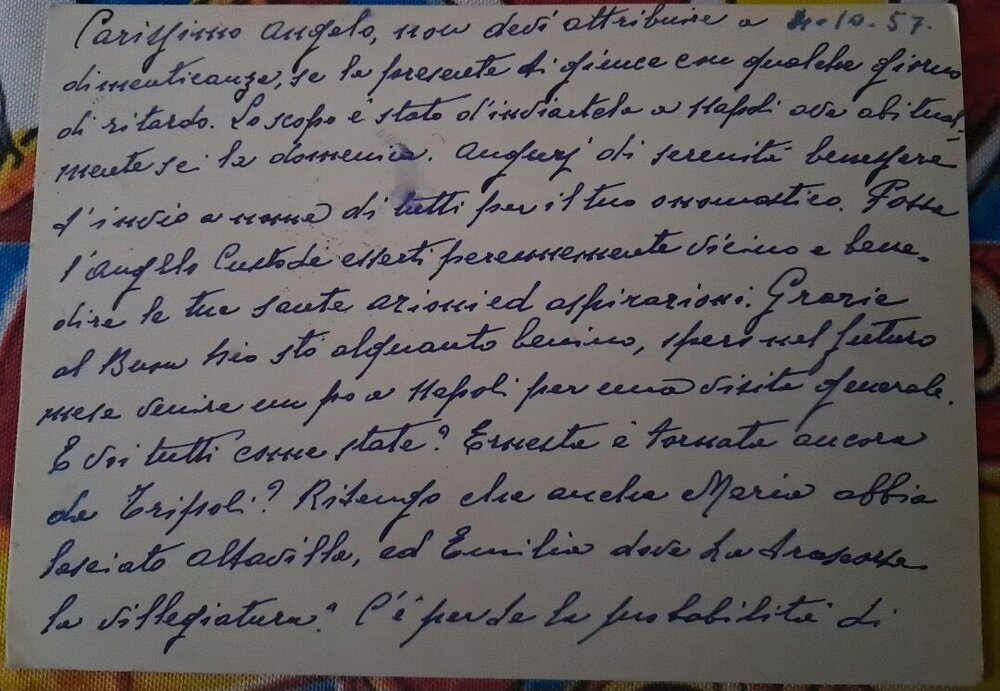 Carissimo Angelo, non devi attribuire a 4-10-57.
dimenticanza, se la presente ti giunge con qualche giorno
di ritardo. Lo scopo è stato d'inviartela a Napoli ove abitual-
mente sei la domenica. Augurj di serenità benessere
t'invio a nome di tutti per il tuo onomastico. Possa
l'Angelo Custode esserti perennemente vicino e bene-
dire le tue sante azioni ed aspirazioni. Grazie
al Buon Dio sto alquanto benino, spero nel futuro
mese venire un po a Napoli per una visita generale.
E voi tutti come state? Ernesta è tornata ancora
da Tripoli? Ritengo che anche Maria abbia
lasciato Altavilla, ed Emilia dove ha trascorsa
la villegiatura? C'è per le la probabilità di